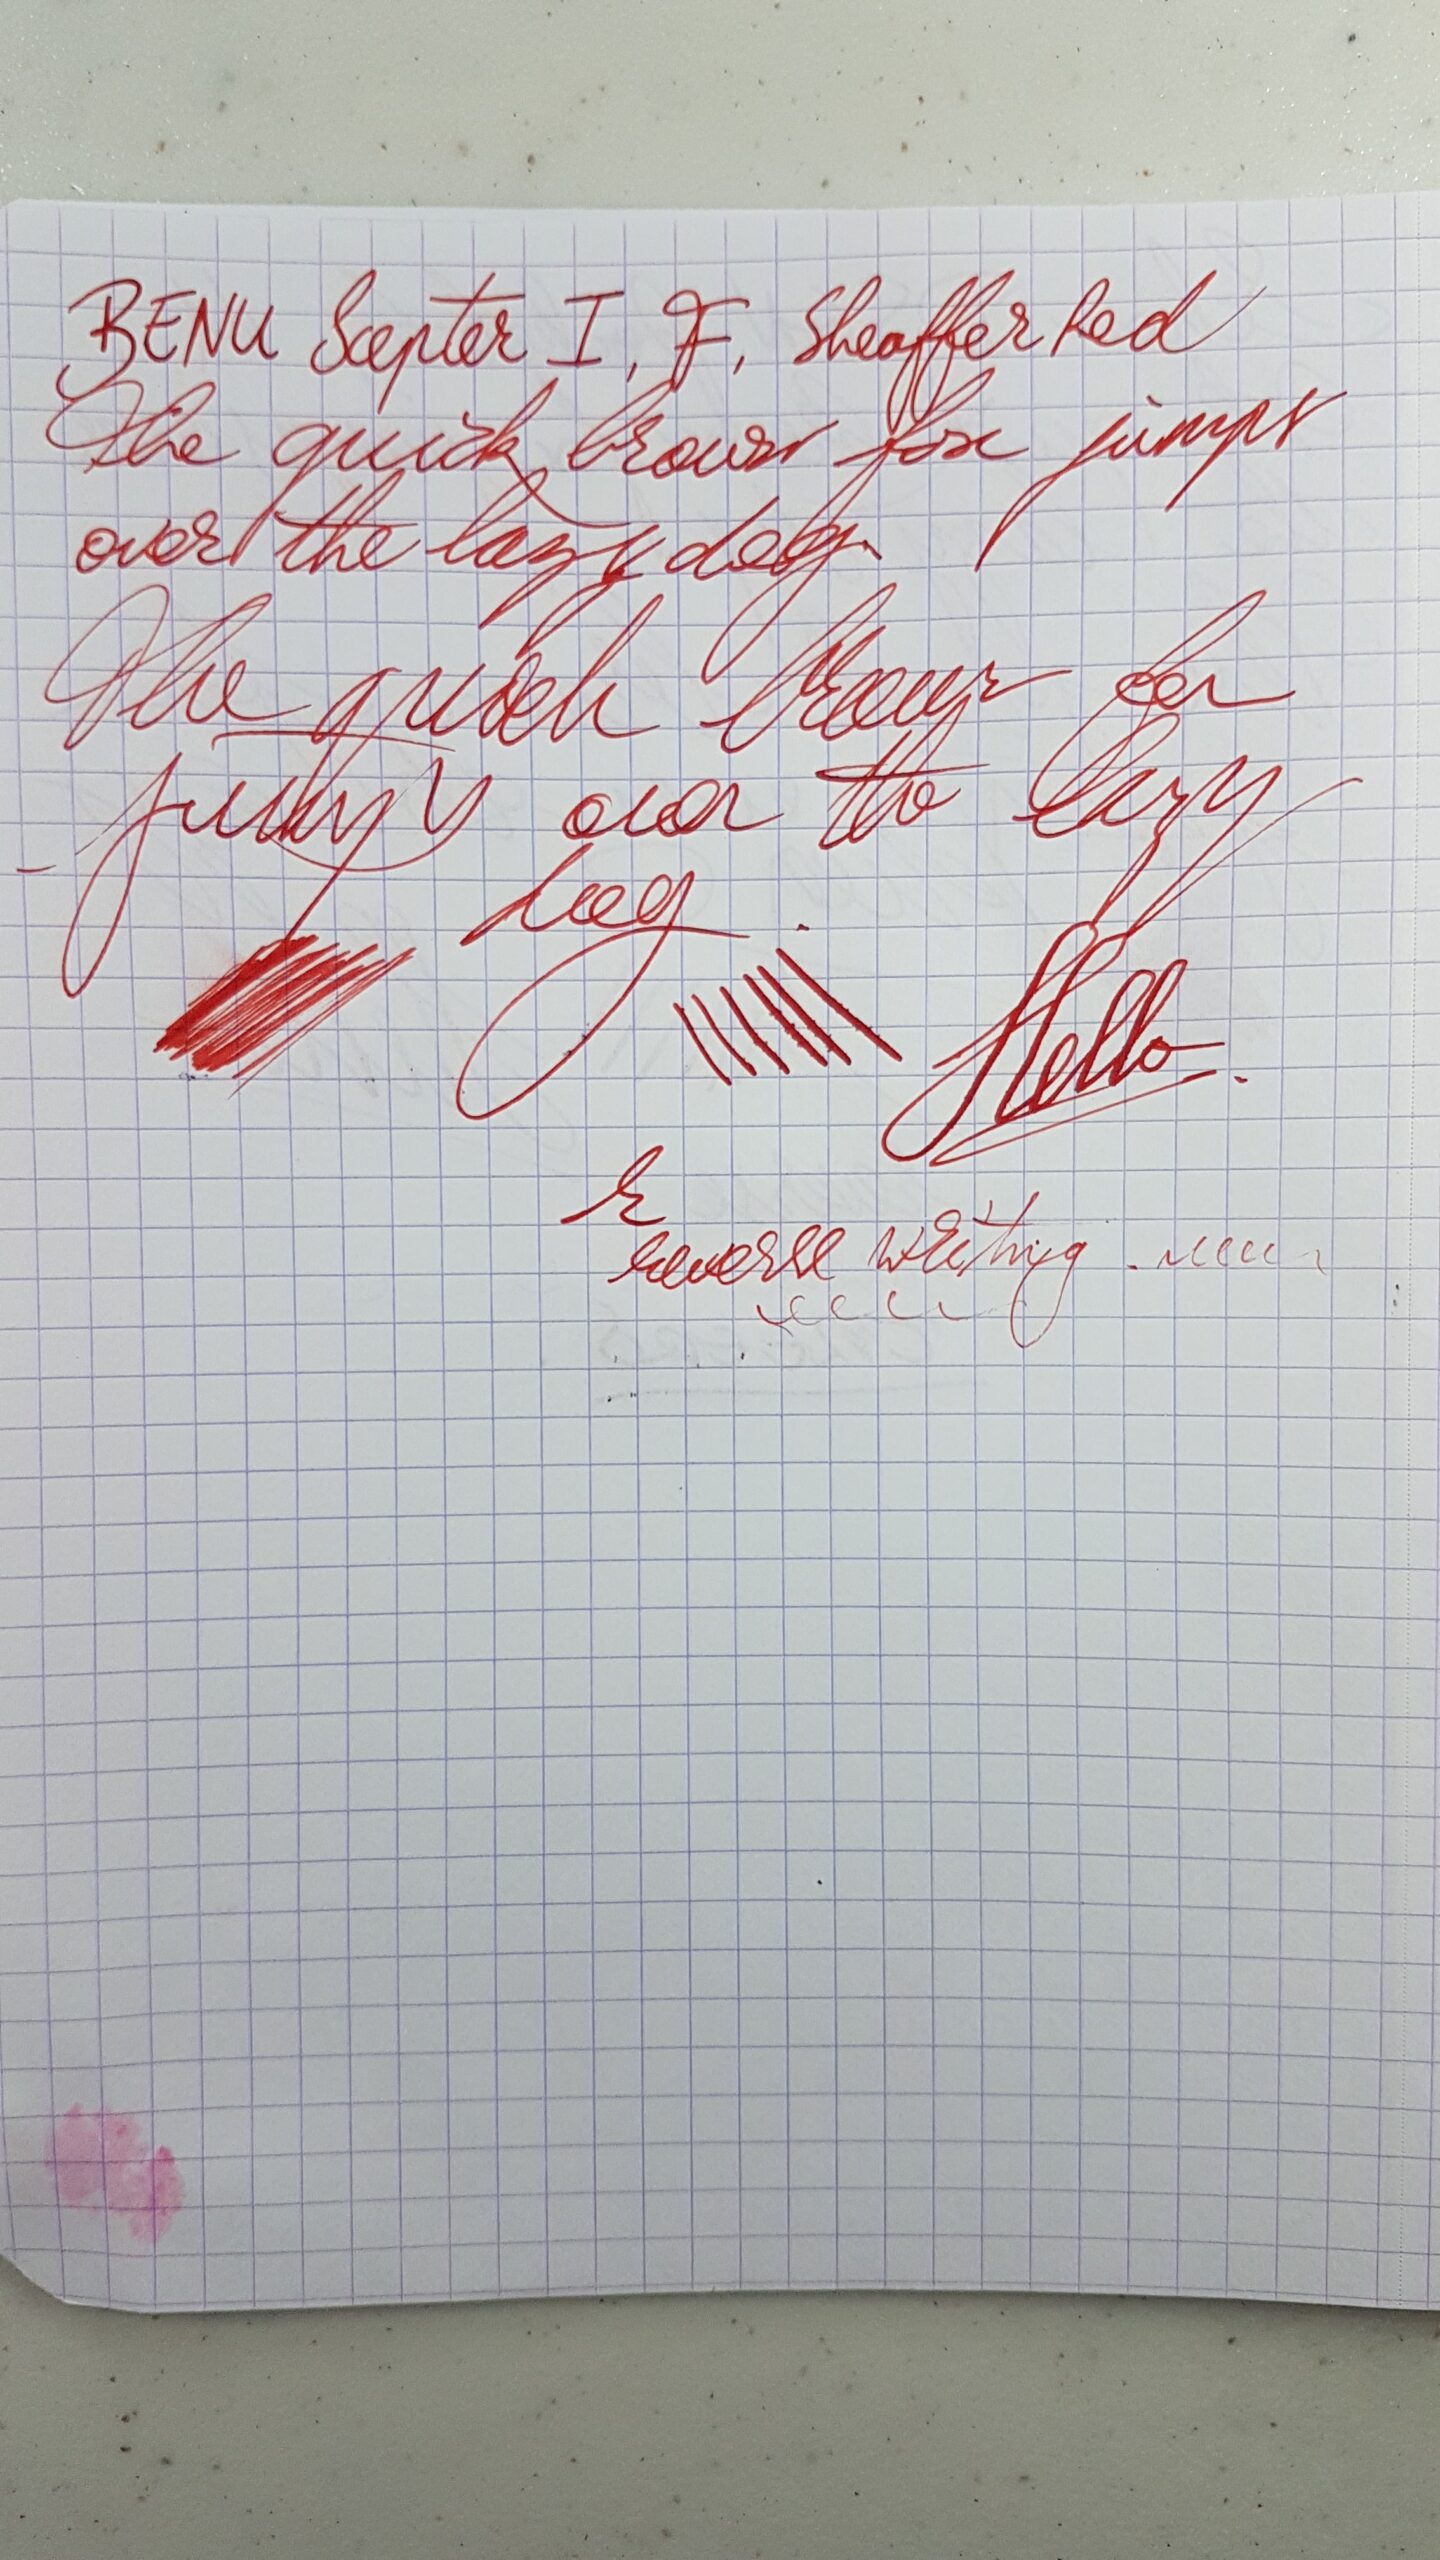 BENU Scepter I, F, Sheaffer Red
The quick brown fox jumps
over the lazy dog.
The quick brown fox
jumps over the lazy
dog.
Hello.
r
reverse writing.